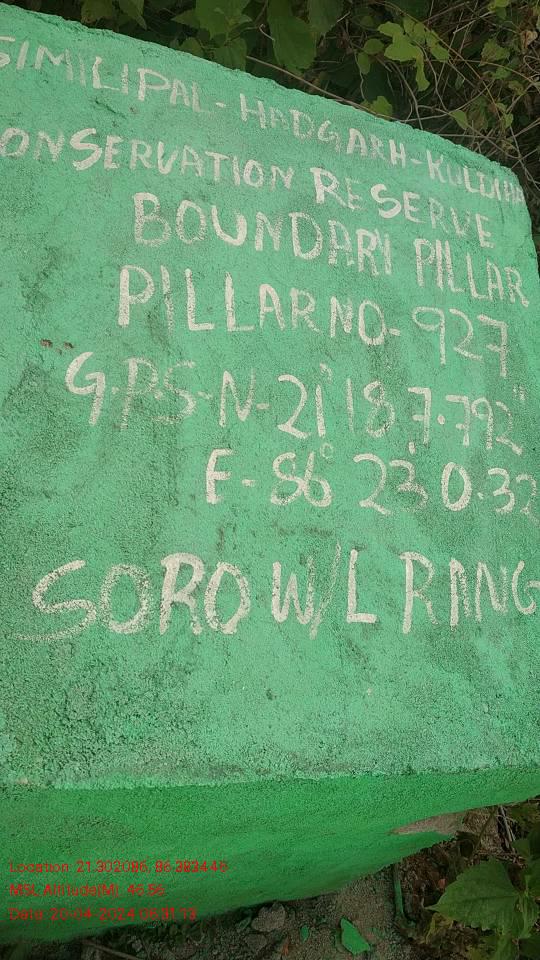 SIMILIPAL-HADGARH-KULDIHA
ONSERVATION RESERVE
BOUNDARY PILLAR
PILLAR NO-927
G.P.S-N-21° 18' 7.792"
E-86° 23' 0.32
SORO W/L RANG
Location: 21.302086, 86.383448
MSL Altitude(M): 46.56
Date: 20-04-2024 06:31:13